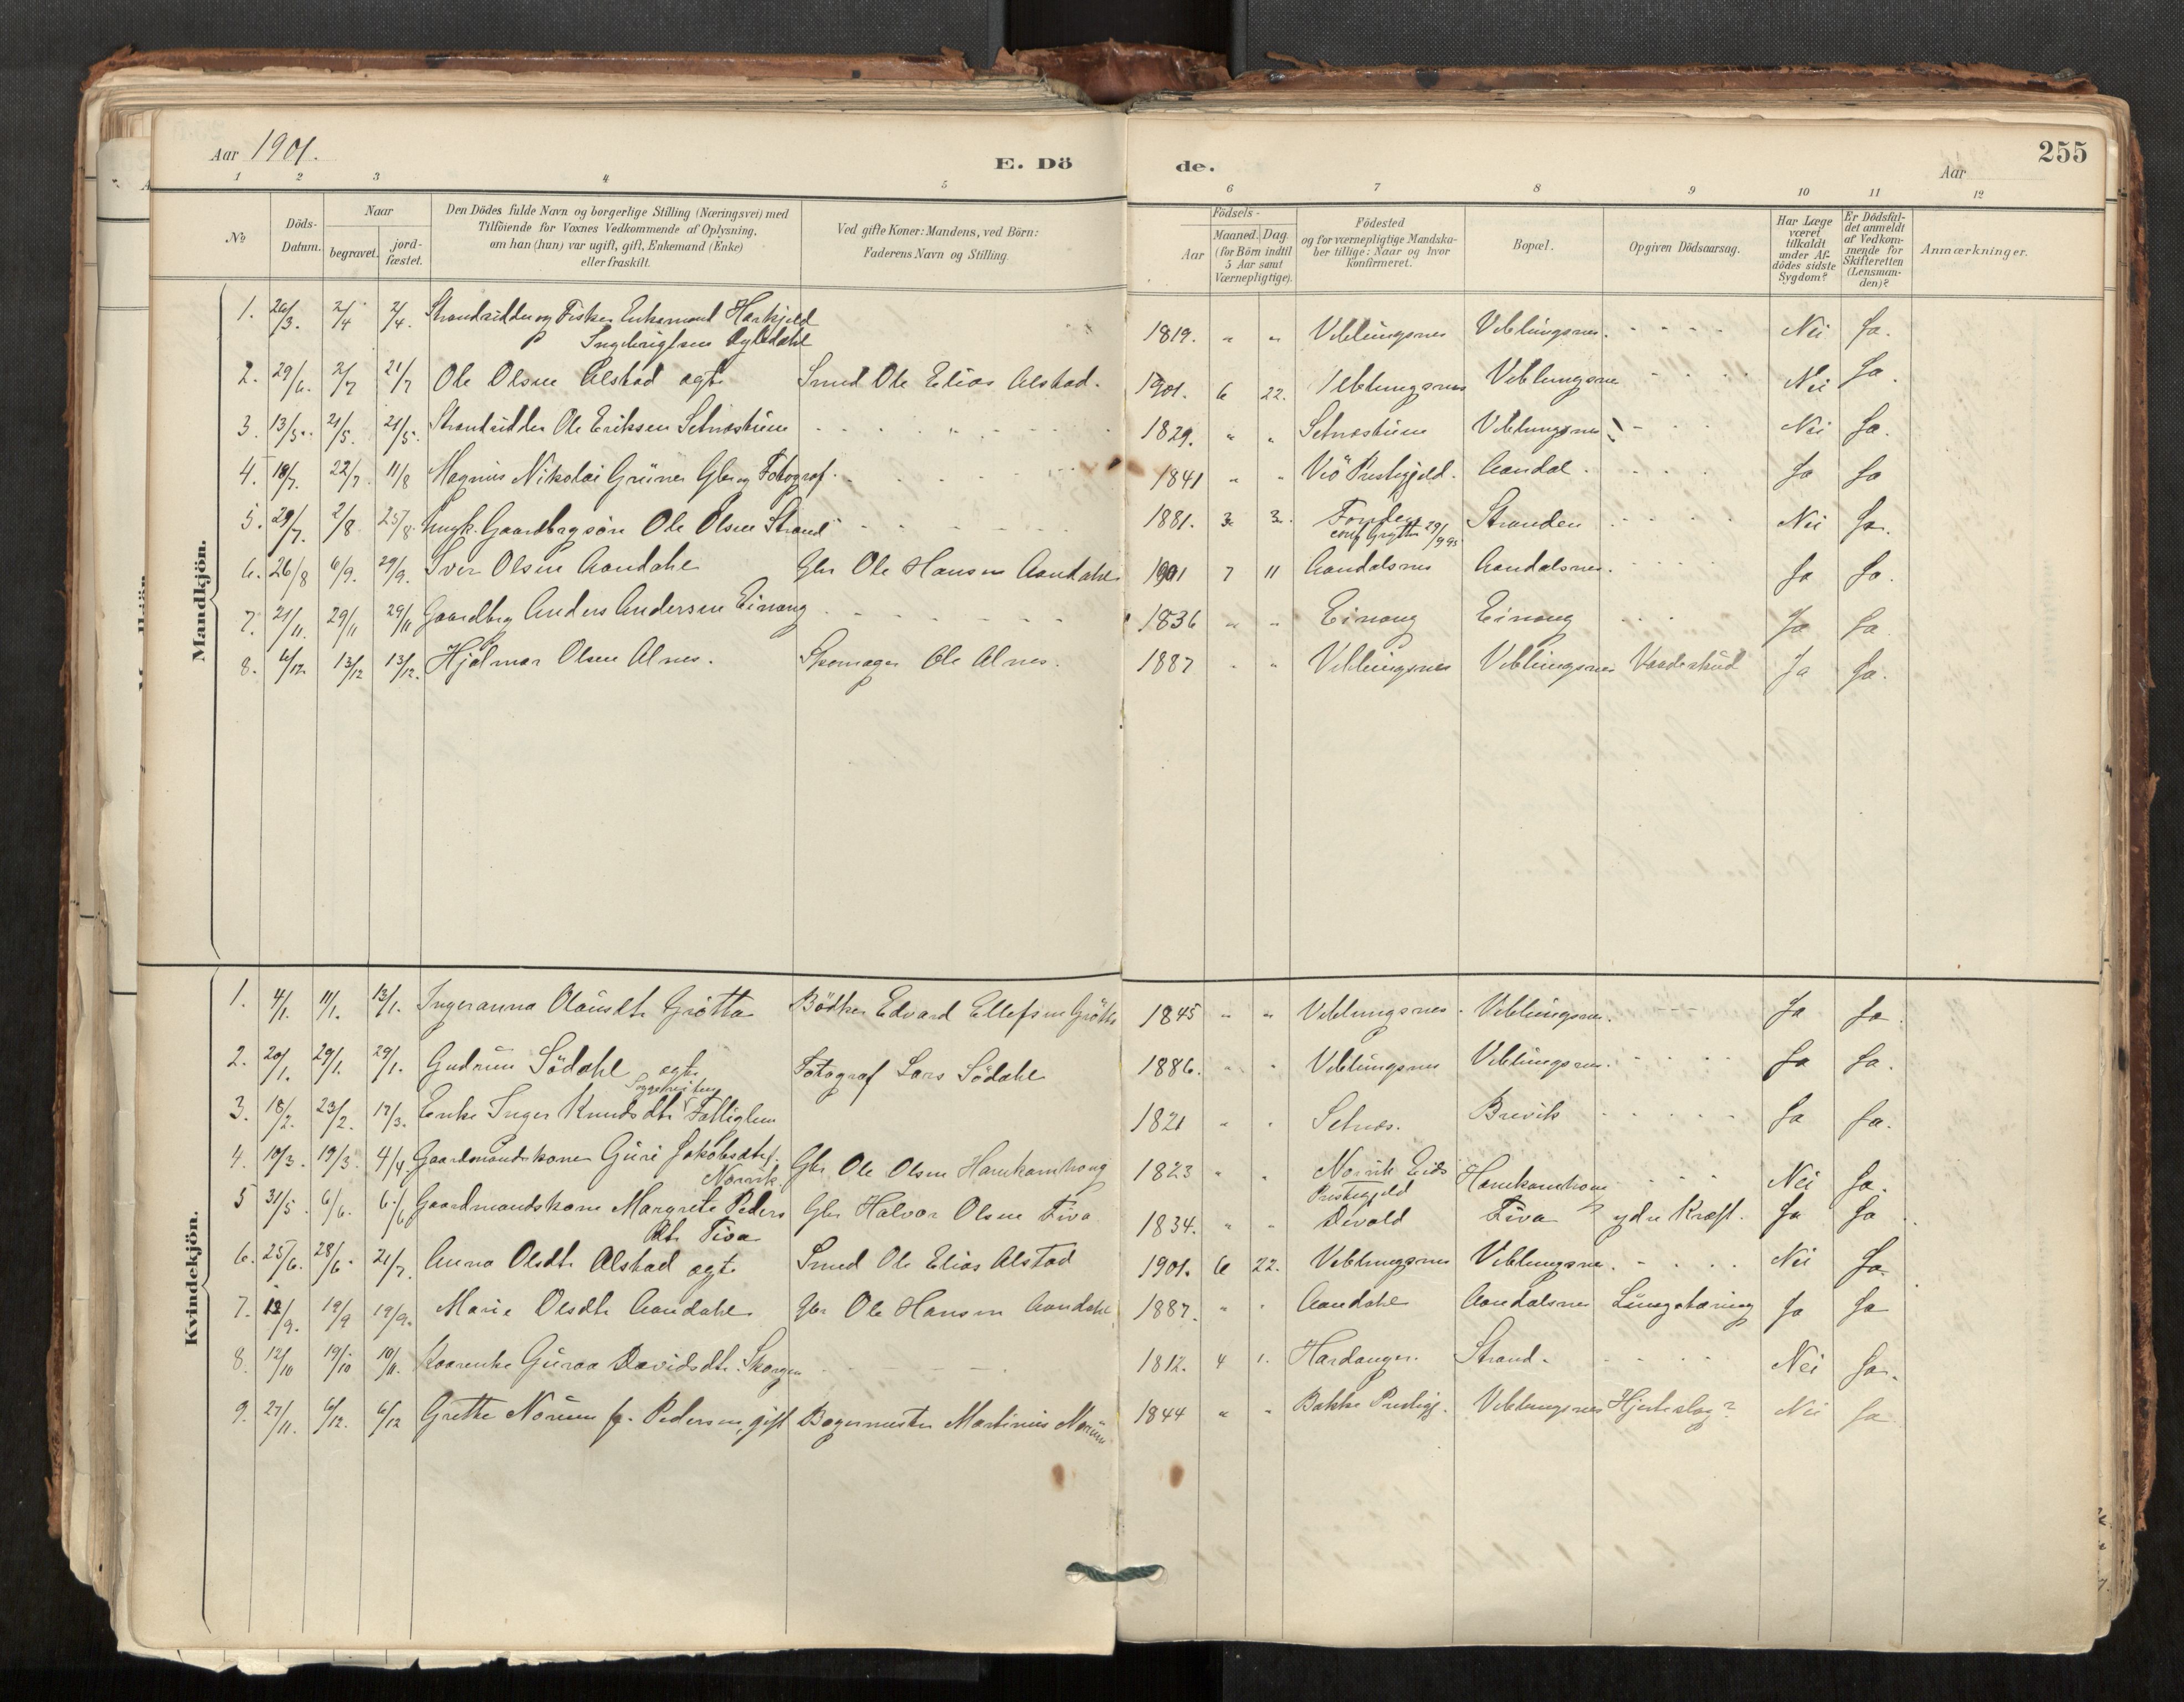 Aar 1901.
E. Dö
de.
Aar
255
1 2 3 4 5 6 7 8 9 10 11 12
No
Döds-Datum.
Naar
begravet. jord-fæstet.
Den Dödes fulde Navn og borgerlige Stilling (Næringsvei) med
Tilföiende for Voxnes Vedkommende af Oplysning,
om han (hun) var ugift, gift, Enkemand (Enke)
eller fraskilt.
Ved gifte Koner: Mandens, ved Börn:
Faderens Navn og Stilling.
Födsels-
Aar
Maaned. Dag.
(for Börn indtil
5 Aar samt
Værnepligtige).
Födested
og for værnepligtige Mandska-
ber tillige: Naar og hvor
konfirmeret.
Bopæl.
Opgiven Dödsaarsag.
Har Læge
været
tilkaldt
under Af-
dödes sidste
Sygdom?
Er Dödsfal-
det anmeldt
af Vedkom-
mende for
Skifteretten
(Lensman-
den)?
Anmærkninger.
Mandkjön.
1. 26/3. 2/4 2/4. Strandsidder og Fisker Enkemand
Ingebrigtsen 1819. " " Veblungsnes Veblungsnes. Nei Ja.
2. 29/6. 2/7 21/7 Ole Olsen Alstad ægte Smed Ole Elias Alstad. 1901. 6 22. Veblungsnes Veblungsnes Nei Ja.
3. 13/5. 21/5. 21/5. Strandsidder Ole Eriksen Setnestuen 1829. " " Setnestuen Veblungsnes Nei Ja.
4. 18/7. 22/7. 11/8 Magnus Nikolai Grüner Gbr og Fotograf. 1841 " " Viö Prestegjeld. Aandal. Ja Ja
5. 29/7. 2/8 25/8. Ungk. Gaardbrgsön Ole Olsen Strand 1881. 3. 3. Stranden Nei Ja.
conf Grytten 29/9 95
6. 26/8 6/9. 29/9. Iver Olsen Aandahl Gbr Ole Hansen Aandahl 1901 7 11 Aandalsnes Aandalsnes. Ja Ja.
7. 21/11. 29/11 29/11 Gaardbrg Anders Andersen Einang 1836 " " Einang Einang Ja Ja
8. 6/12. 13/12 13/12. Hjalmar Olsen Alnes. Skomager Ole Alnes. 1887 " " Veblungsnes Veblungsnes Vaadeskud Ja Ja.
Kvindekjön.
1. 4/1. 11/1. 13/1. Ingeranna Olausdt. Grötta Bödker Edvard Ellefsen Grötta 1845 " " Veblungsnes. Veblungsnes. Ja Ja.
2. 20/1. 29/1. 29/1. Gudrun Södahl ægte Fotograf Lars Södahl 1886. " " Veblungsnes Veblungsnes. Ja Ja.
3. 18/2. 23/2. 17/3. Enke Inger Knudsdtr Fattiglem 1821 " " Setnes. Brevik Ja Ja.
4. 10/3. 19/3. 4/4. Gaardmandskone Guri Jakobsdtr f.
Norvik. Gbr Ole Olsen Hamkamhoug 1823 " " Norvik Eids
Prestegjeld Hamkamhoug Nei Ja.
5 31/5. 6/6. 6/6 Gaardmandskone Margrete Peders
dtr Fiva Gbr Halvor Olsen Fiva 1834. " " Devold Fiva ydre Kræft. Ja Ja
6. 25/6. 28/6. 21/7. Anna Olsdtr Alstad ægte Smed Ole Elias Alstad 1901. 6 22. Veblungsnes Veblungsnes. Nei Ja.
7. 12/9. 19/9 19/9. Marie Olsdtr Aandahl Gbr Ole Hansen Aandahl 1887. " " Aandahl Aandalsnes Lungetæring Ja Ja
8. 12/10 19/10 10/11. Kaarenke Guroa Davidsdtr. Skorgen 1812. 4 1. Hardanger. Strand. Nei Ja.
9. 27/11. 6/12. 6/12 Grethe Norum f. Pedersen, gift Bagermester Martinius Norum 1844 " " Bakke Prestegj. Veblungsnes Hjerteslag? Nei Ja